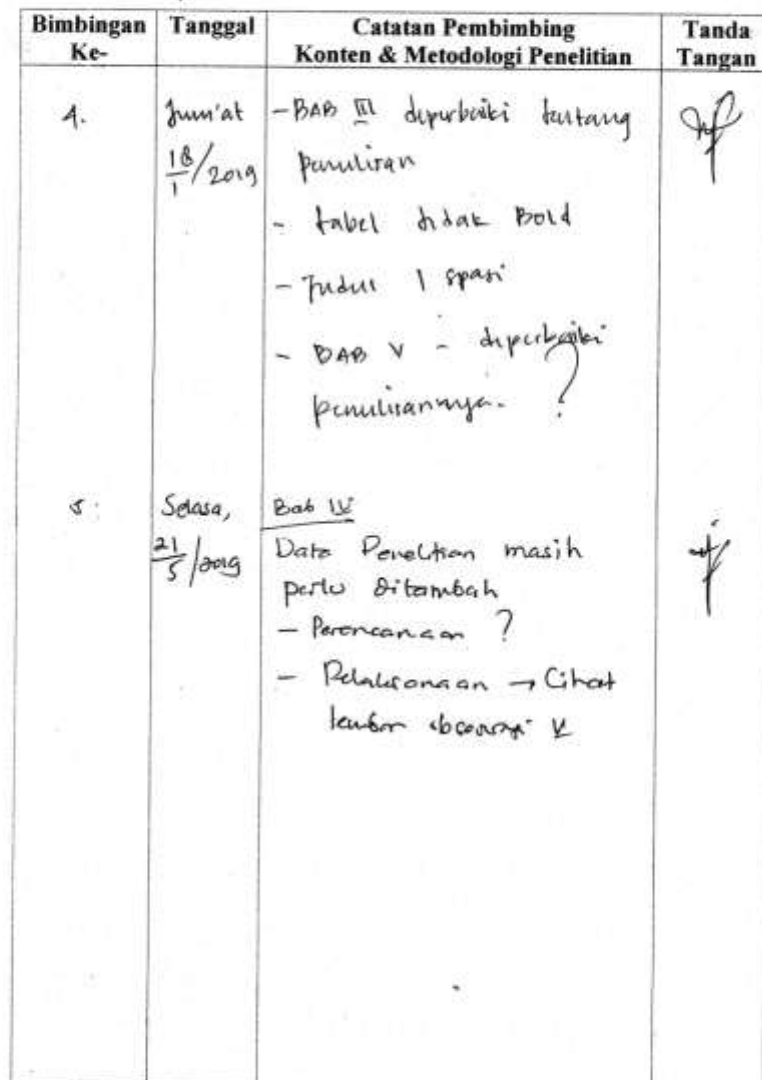 Bimbingan Ke- Tanggal Catatan Pembimbing Konten & Metodologi Penelitian Tanda Tangan
4. Jum'at - BAB III diperbaiki tentang
18/1/2019 penulisan
- tabel tidak Bold
- Judul 1 spasi
- BAB V - diperbaiki
penulisannya. ?
5. Selasa, Bab IV
21/5/2019 Data Penelitian masih
perlu ditambah
- Perencanaan ?
- Pelaksanaan → Lihat
lembar observasi